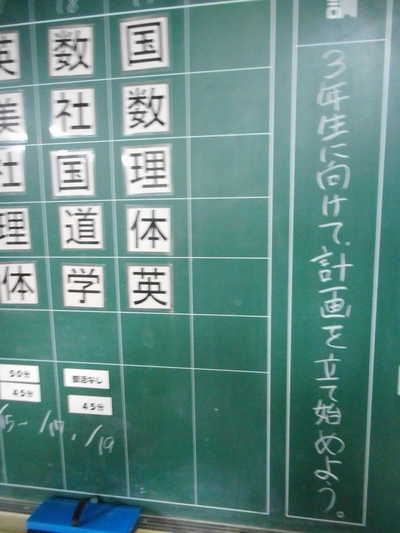 3年生に向けて、計画を立て始めよう。
国
数
理
体
英
数
社
国
道
学
部活なし
45分
英
美
社
理
体
50分
45分